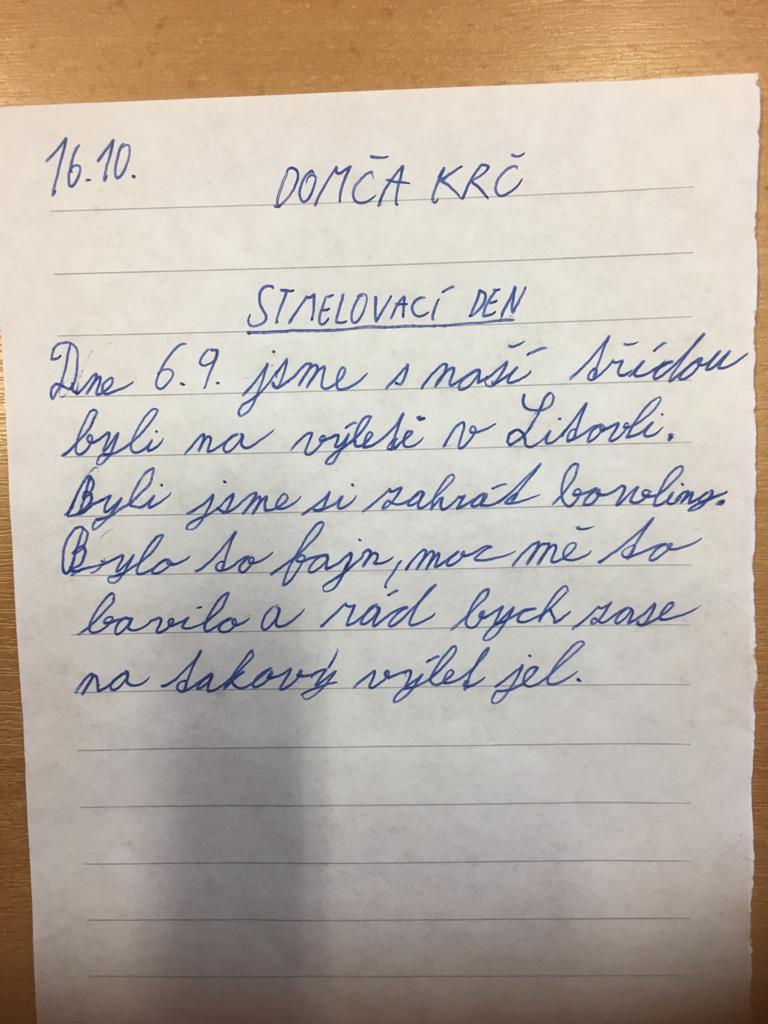 16.10.
DOMČA KRČ
STMELOVACÍ DEN
Dne 6.9. jsme s naší třídou
byli na výletě v Litovli.
Byli jsme si zahrát bowling.
Bylo to fajn, moc mě to
bavilo a rád bych zase
na takový výlet jel.